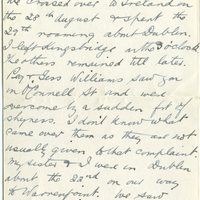 we crossed over to Ireland on
the 28th August & spent the
29th roaming about Dublin.
I left Kingsbridge at the 3 o'clock
The others remained till later.
Bay & Jess Williams saw you
in O'Connell St and were
overcome by a sudden fit of
shyness. I don't know what
came over them as they are not
usually given to that complaint.
My sister & I were in Dublin
about the 22nd on our way
to Warrenpoint. We saw